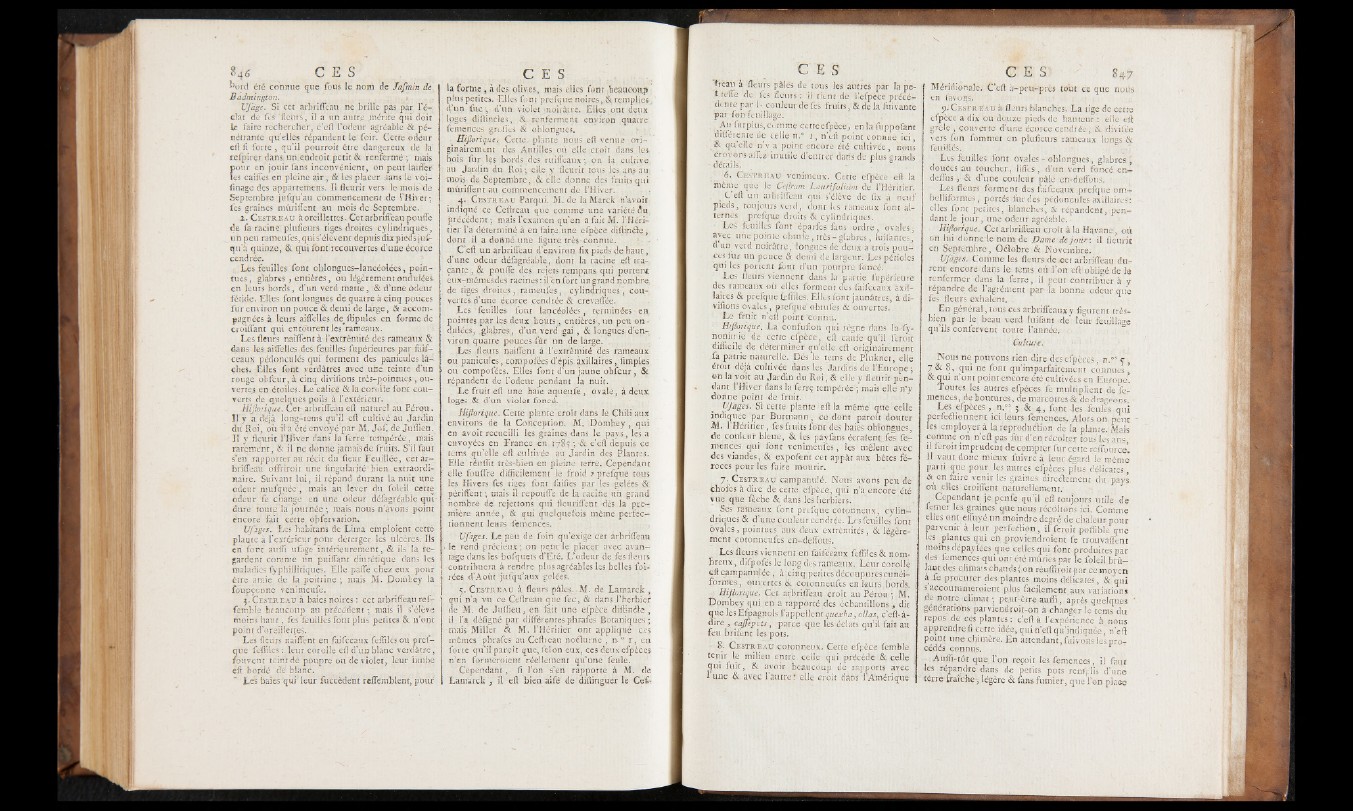 846 C E S
bord été connue que sous le nom de Jasmin de
Badmington.
Usage. Si cet arbrisseau ne brille pas par l'é-
clat de ses fleurs, il a un autre mérite qui doit
le faire rechercher, c'est l'odeur agréable & pé-
nétrante qu'elles répandent le soir. Cette odeur
est si forte, qu'il pourroit être dangereux de la
respirer dans un endroit petit & renfermé; mais
pour en jouir sans inconvénient, on peut laisser
les caisses en pleine air, & les placer dans le voi-
sinage des appartemens. Il fleurit vers le mois de
Septembre jusqu'au commencement de l'Hiver;
ses graines mûrissent au mois de Septembre.
2. CESTREAU à oreillettes. Cet arbrisseau pousse
de sa racine plusieurs tiges droites cylindriques,
un peu rameuses, qui s'élèvent depuis dix pieds jus-
qu'à quinze, & qui sont recouvertes d'une écorce
cendrée.
Les feuilles sont oblongues-lancéolées, poin-
tues, glabres, entières, ou légèrement ondulées
en leurs bords, d'un verd matte, & d'une odeur
fétide. Elles sont longues de quatre à cinq pouces
sur environ un pouce & demi de large, & accom-
pagnées à leurs aisselles de stipules en forme de
croissant qui entourent les rameaux.
Les fleurs naissent à l'extrémité des rameaux &
dans les aisselles des feuilles supérieures par fais-
ceaux pédonculés qui forment des panicules lâ-
ches. Elles sont verdâtres avec une teinte d'un
rouge obscur, à cinq divisions très-pointues, ou-
vertes en étoiles. Le calice & la corolle sont cou-
verts de quelques poils à l'extérieur.
Historique. Cet arbrisseau est naturel au Pérou.
Il y a déjà long-tems qu'il est cultivé au Jardin
du Roi, où il a été envoyé par M. Jos. de Jussieu.
Il y fleurit l'Hiver dans la serre tempérée, mais
rarement, & il ne donne jamais de fruits. S'il faut
s'en rapporter au récit du sieur Feuillée, cet ar-
brisseau offriroit une singularité bien extraordi-
naire. Suivant lui, il répand durant la nuit une
odeur musquée, mais au lever du soleil cette
odeur se change en une odeur désagréable qui
dure toute la journée; mais nous n'avons point
encore fait cette observation.
Usages. Les habitans de Lima emploient cette
plante à l'extérieur pour déterger les ulcères. Ils
en font aussi usage intérieurement, & ils la re-
gardent comme un puissant diurétique dans les
maladies syphillitiques. Elle passe chez eux pour
être amie de la poitrine; mais M. Dombey la
soupçonne venimeuse.
3. CESTREAU à baies noires: cet arbrisseau res-
semble beaucoup au précédent; mais il s'élève
moins haut, ses feuilles sont plus petites & n'ont
point d'oreillettes.
Les fleurs naissent en faisceaux sessiles ou pres-
que sessiles: leur corolle est d'un blanc verdâtre,
souvent teint de poupre ou de violet, leur limbe
est bordé de blanc.
Les baies qui leur succèdent ressemblent, pour
C E S
la forme, à des olives, mais elles sont beaucoup
plus petites. Elles sont presque noires, & remplies
d'un suc, d'un violet noirâtre. Elles ont deux
loges distinctes, & renferment environ quatre
semences grosses & oblongues.
Historique. Cette plante nous est venue ori-
ginairement des Antilles où elle croît dans les
bois sur les bords des ruisseaux; on la cultive
au Jardin du Roi; elle y fleurit tous les ans au
mois de Septembre, & elle donne des fruits qui
mûrissent au commencement de l'Hiver.
4. CESTREAU Parqui. M. de la Marck n'avoit
indiqué ce Cestreau que comme une variété du
précédent; mais l'examen qu'en a fait M. l'Héri-
tier l'a déterminé à en faire une espèce distincte,
dont il a donné une figure très-connue.
C'est un arbrisseau d'environ six pieds de haut,
d'une odeur désagréable, dont la racine est tra-
çante, & pousse des rejets rempans qui portent
eux-mêmes des racines: il en sort un grand nombre
de tiges droites, rameuses, cylindriques, cou-
vertes d'une écorce cendrée & crevassée.
Les feuilles sont lancéolées, terminées en
pointes par les deux bouts, entières, un peu on-
dulées, glabres, d'un verd gai, & longues d'en-
viron quatre pouces sur un de large.
Les fleurs naissent à l'extrémité des rameaux
ou panicules, composées d'épis axillaires, simples
ou composées. Elles sont d'un jaune obscur, &
répandent de l'odeur pendant la nuit.
Le fruit est une baie aqueuse, ovale, à deux
loges & d'un violet foncé.
Historique. Cette plante croît dans le Chili aux
environs de la Conception. M. Dombey, qui
en avoit recueilli les graines dans le pays, les a
envoyées en France en 1785; & c'est depuis ce
tems qu'elle est cultivée au Jardin des Plantes.
Elle réussit très-bien en pleine terre. Cependant
elle souffre difficilement le froid: presque tous
les Hivers ses tiges sont saisies par les gelées &
périssent; mais il repousse de la racine un grand
nombre de rejetons qui fleurissent dès la pre-
mière année, & qui quelquefois même perfec-
tionnent leurs semences.
Usages. Le peu de soin qu'exige cet arbrisseau
le rend précieux: on peut le placer avec avan-
tage dans les bosquets d'Eté. L'odeur de ses fleurs
contribuera à rendre plus agréables les belles soi-
rées d'Août jusqu'aux gelées.
5. CESTREAU à fleurs pâles. M. de Lamarck,
qui n'a vu ce Cestreau que sec, & dans l'herbier
de M. de Jussieu, en fait une espèce distincte,
il l'a désigné par différentes phrases Botaniques;
mais Miller & M. l'Héritier ont appliqué ces
mêmes phrases au Cestreau nocturne, n.° 1, en
sorte qu'il paroît que, selon eux, ces deux espèces
n'en formeroient réellement qu'une seule.
Cependant, si l'on s'en rapporte à M. de
Lamarck, il est bien aisé de distinguer le Ces-
C E S
treau à fleurs pâles de tous les autres par la pe-
titesse de ses fleurs: il tient de l'espèce précé-
dente par la couleur de ses fruits, & de la suivante
par son feuillage.
Au surplus, comme cette espèce, en la supposant
différente de celle n.° 1, n'est point connue ici,
& qu'elle n'y a point encore été cultivée, nous
croyons assez inutile d'entrer dans de plus grands
détails.
6. CESTREAU venimeux. Cette espèce est la
même que le Cestrum Laurifolium de l'Héritier.
C'est un arbrisseau qui s'élève de six à neuf
pieds, toujours verd, dont les rameaux sont al-
ternes presque droits & cylindriques.
Les feuilles sont éparses sans ordre, ovales,
avec une pointe obtuse, très-glabres, luisantes,
d'un verd noirâtre, longues de deux à trois pou-
ces sur un pouce & demi de largeur. Les pétioles
qui les portent sont d'un pourpre foncé.
Les fleurs viennent dans la partie supérieure
des rameaux où elles forment des faisceaux axil-
laires & presque sessiles. Elles sont jaunâtres, à di-
visions ovales, presque obtuses & ouvertes.
Le fruit n'est point connu.
Historique. La confusion qui règne dans la sy-
nonimie de cette espèce, est cause qu'il seroit
difficile de déterminer qu'elle est originairement
sa patrie naturelle. Dès le tems de Pluknet, elle
étoit déjà cultivée dans les Jardins de l'Europe;
on la voit au Jardin du Roi, & elle y fleurit pen-
dant l'Hiver dans la serre tempérée; mais elle n'y
donne point de fruit.
Usages. Si cette plante est la même que celle
indiquée par Burmann, ce dont paroît douter
M. l'Héritier, ses fruits sont des baies oblongues,
de couleur bleue, & les paysans écrasent ses se-
mences qui sont venimeuses, les mêlent avec
des viandes, & exposent cet appât aux bêtes fé-
roces pour les faire mourir.
7. CESTREAU campanulé. Nous avons peu de
choses à dire de cette espèce, qui n'a encore été
vue que sèche & dans les herbiers.
Ses rameaux sont presque cotonneux, cylin-
driques & d'une couleur cendrée. Les feuilles sont
ovales, pointues aux deux extrémités, & légère-
ment cotonneuses en-dessous.
Les fleurs viennent en faisceaux sessiles & nom-
breux, disposés le long des rameaux. Leur corolle
est campanulée, à cinq petites découpures cunéi-
formes, ouvertes & cotonneuses en leurs bords.
Historique. Cet arbrisseau croît au Pérou; M.
Dombey qui en a rapporté des échantillons, dit
que les Espagnols l'appellent quexha, ollas, c'est-à-
dire, cassepots, parce que les éclats qu'il fait au
feu brisent les pots.
8. CESTREAU cotonneux. Cette espèce semble
tenir le milieu entre celle qui précède & celle
qui suit, & avoir beaucoup de rapports avec
l'une & avec l'autre: elle croît dans l'Amérique
C E S 847
Méridionale. C'est à-peu-près tout ce que nous
en savons.
9. CESTREAU à fleurs blanches. La tige de cette
espèce a dix ou douze pieds de hauteur: elle est
grêle, couverte d'une écorce cendrée, & divisée
vers son sommet en plusieurs rameaux longs &
feuillés.
Les feuilles sont ovales-oblongues, glabres,
douces au toucher, lisses, d'un verd foncé en-
dessus, & d'une couleur pâle en-dessous.
Les fleurs forment des faisceaux presque om-
belliformes, portés sur des pédoncules axillaires:
elles sont petites, blanches, & répandent, pen-
dant le jour, une odeur agréable.
Historique. Cet arbrisseau croît à la Havane, où
on lui donne le nom de Dame de jour: il fleurit
en Septembre, Octobre & Novembre.
Usages. Comme les fleurs de cet arbrisseau du-
rent encore dans le tems où l'on est obligé de le
renfermer dans la serre, il peut contribuer à y
répandre de l'agrément par la bonne odeur que
ses fleurs exhalent.
En général, tous ces arbrisseaux y figurent très-
bien par le beau verd luisant de leur feuillage
qu'ils conservent toute l'année.
Culture.
Nous ne pouvons rien dire des espèces, n.os 5,
7 & 8, qui ne sont qu'imparfaitement connues,
& qui n'ont point encore été cultivées en Europe.
Toutes les autres espèces se multiplient de se-
mences, de boutures, de marcottes & de drageons.
Les espèces, n.os 3 & 4, sont les seules qui
perfectionnent ici leurs semences. Alors on peut
les employer à la reproduction de la plante. Mais
comme on n'est pas sûr d'en récolter tous les ans,
il seroit imprudent de compter sur cette ressource.
Il vaut donc mieux suivre à leur égard le même
parti que pour les autres espèces plus délicates,
& en faire venir les graines directement du pays
où elles croissent naturellement.
Cependant je pense qu'il est toujours utile de
semer les graines que nous récoltons ici. Comme
elles ont essuyé un moindre degré de chaleur pour
parvenir à leur perfection, il seroit possible que
les plantes qui en proviendroient se trouvassent
moins dépaysées que celles qui sont produites par
des semences qui ont été mûries par le soleil brû-
lant des climats chauds (on réussiroit par ce moyen
à se procurer des plantes moins délicates, & qui
s'accommoderoient plus facilement aux variations
de notre climat; peut-être aussi, après quelques
générations parviendroit-on à changer le tems du
repos de ces plantes: c'est à l'expérience à nous
apprendre si cette idée, qui n'est qu'indiquée, n'est
point une chimère. En attendant, suivons les pro-
cédés connus.
Aussi-tôt que l'on reçoit les semences, il faut
les répandre dans de petits pots remplis d'une
terre fraîche, légère & sans fumier, que l'on place